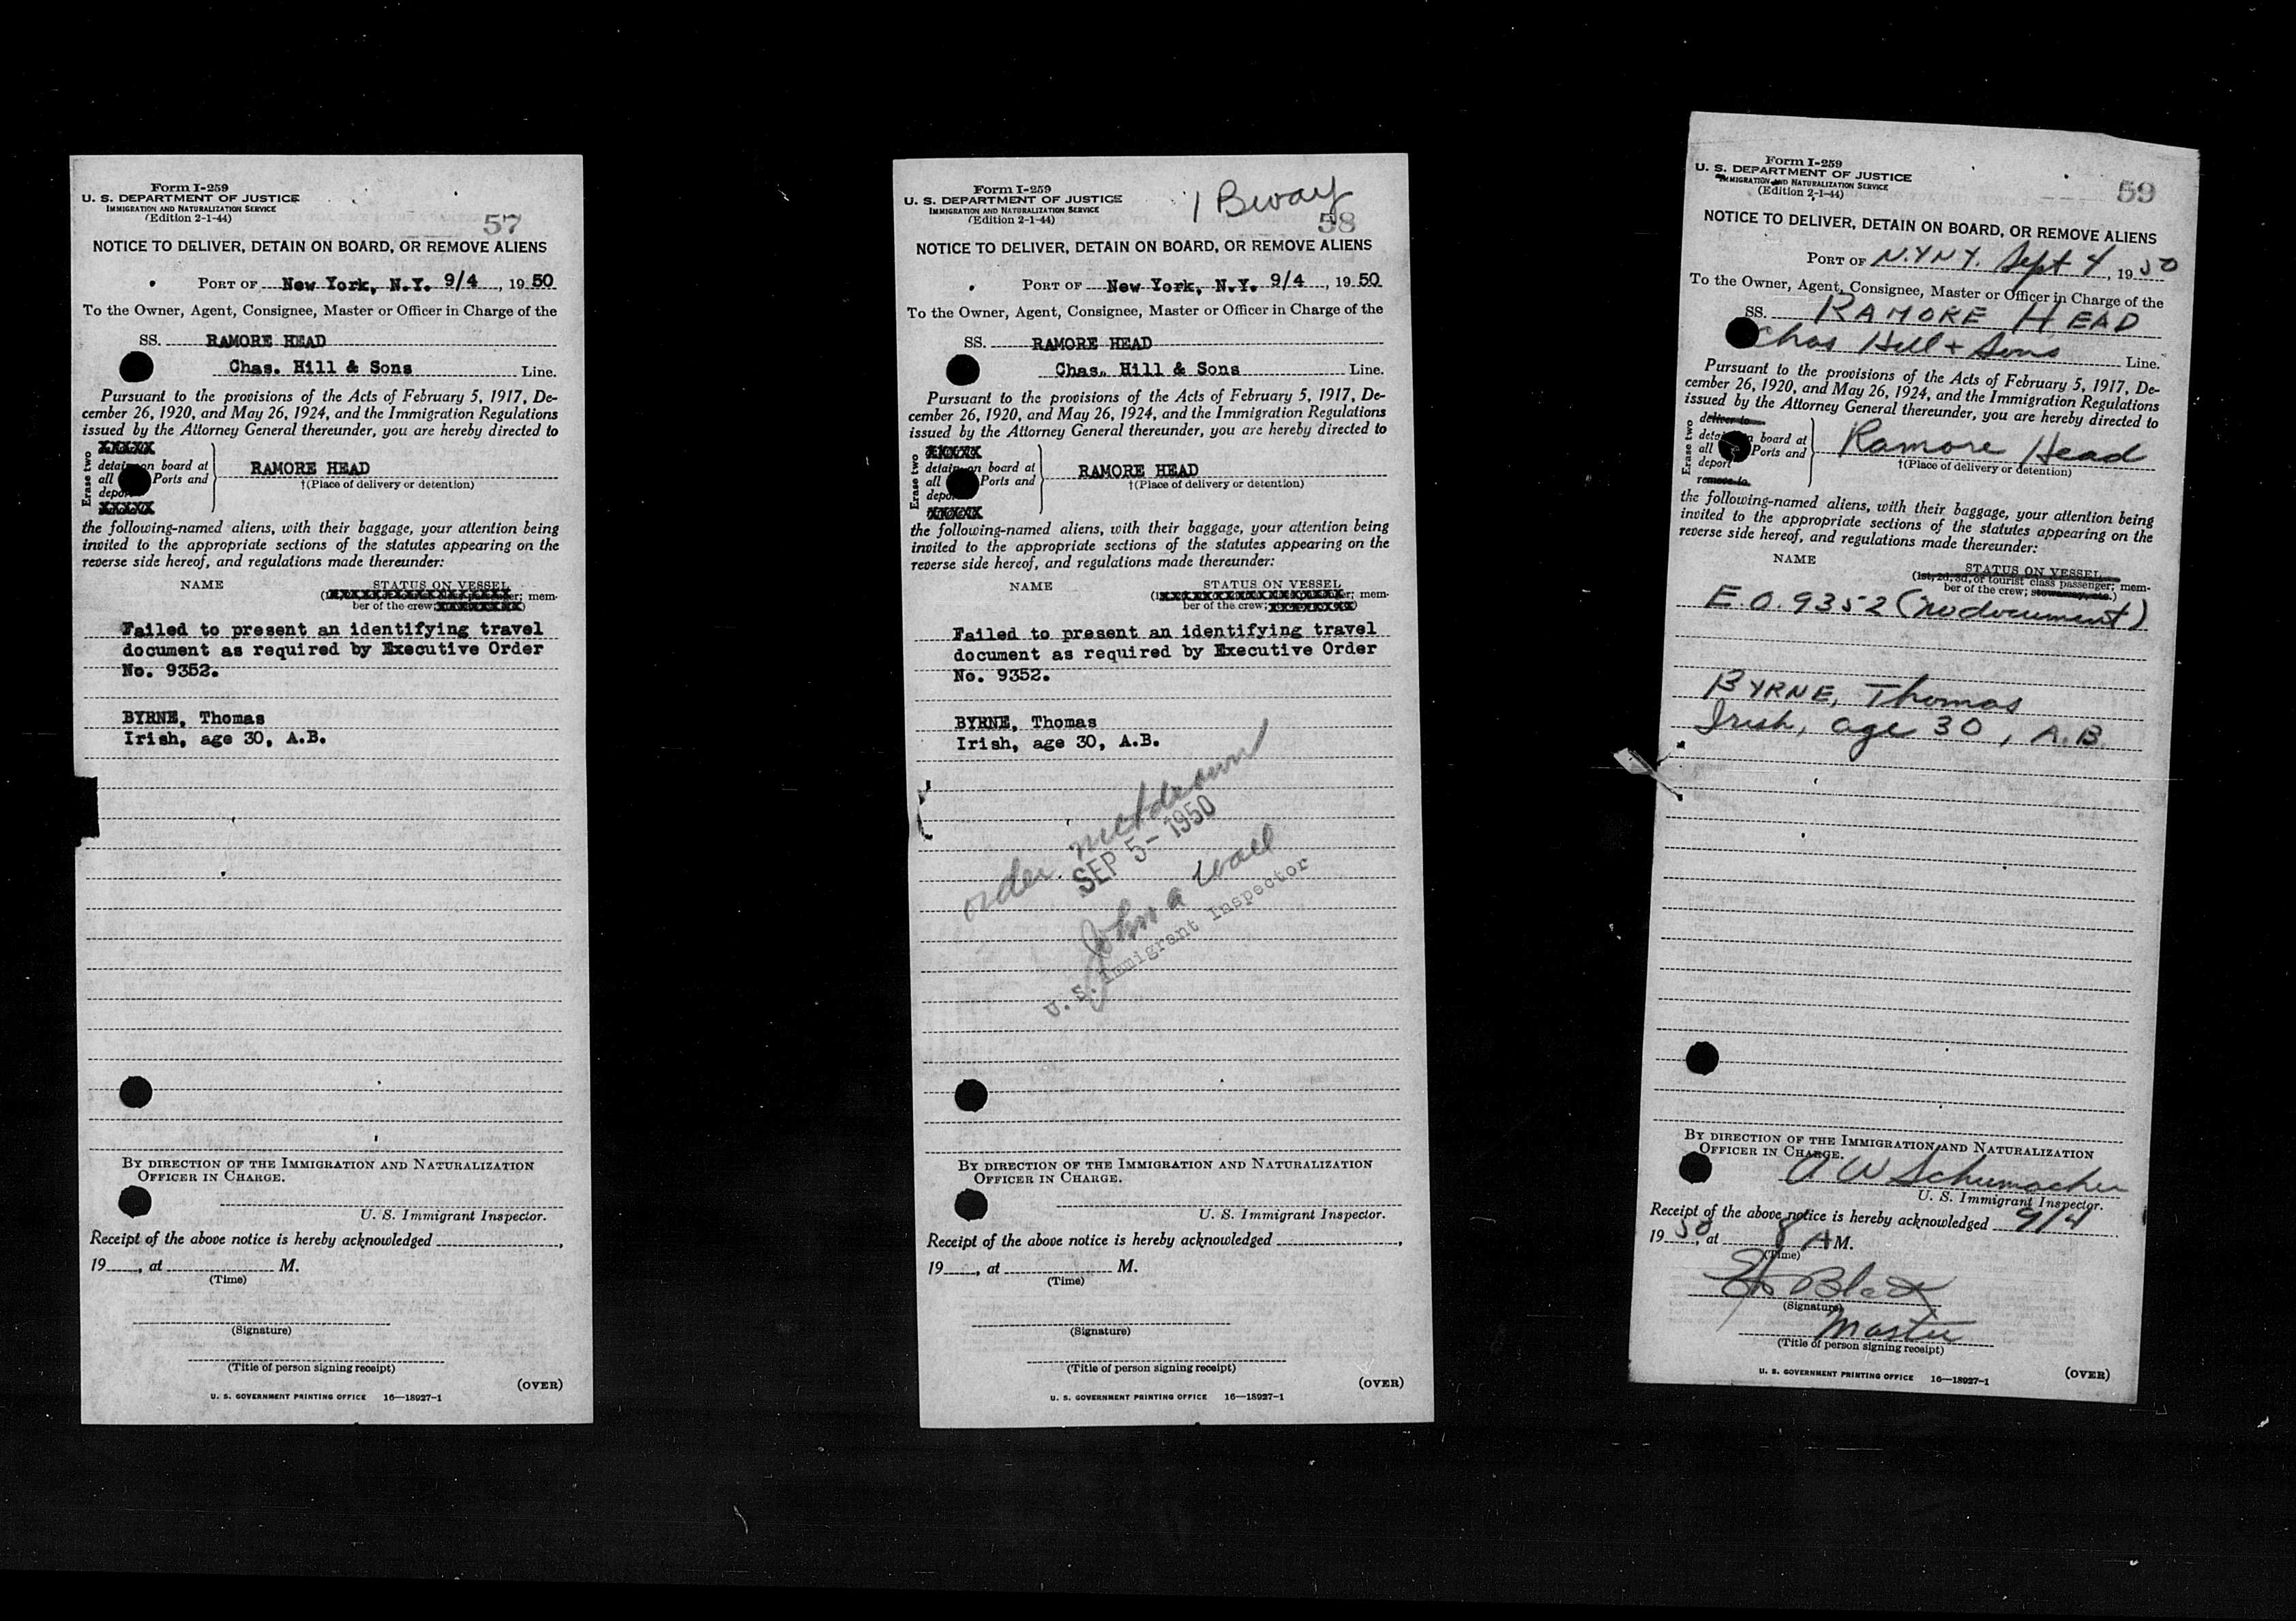 Form I-259
U. S. DEPARTMENT OF JUSTICE
IMMIGRATION AND NATURALIZATION SERVICE
(Edition 2-1-44)
57
NOTICE TO DELIVER, DETAIN ON BOARD, OR REMOVE ALIENS
PORT OF New York, N.Y. 9/4, 1950
To the Owner, Agent, Consignee, Master or Officer in Charge of the
SS. RAMORE HEAD
Chas. Hill & Sons Line.
Pursuant to the provisions of the Acts of February 5, 1917, De-
cember 26, 1920, and May 26, 1924, and the Immigration Regulations
issued by the Attorney General thereunder, you are hereby directed to
Erase two
XXXXX
detain on board at
all Ports and
deport
XXXXX
RAMORE HEAD
†(Place of delivery or detention)
the following-named aliens, with their baggage, your attention being
invited to the appropriate sections of the statutes appearing on the
reverse side hereof, and regulations made thereunder:
NAME STATUS ON VESSEL
mem-
ber of the crew;
Failed to present an identifying travel
document as required by Executive Order
No. 9352.
BYRNE, Thomas
Irish, age 30, A.B.
BY DIRECTION OF THE IMMIGRATION AND NATURALIZATION
OFFICER IN CHARGE.
U. S. Immigrant Inspector.
Receipt of the above notice is hereby acknowledged ,
19 , at M.
(Time)
(Signature)
(Title of person signing receipt)
(OVER)
U. S. GOVERNMENT PRINTING OFFICE 16—18927-1
Form I-259
U. S. DEPARTMENT OF JUSTICE
IMMIGRATION AND NATURALIZATION SERVICE
(Edition 2-1-44)
1 Bway
58
NOTICE TO DELIVER, DETAIN ON BOARD, OR REMOVE ALIENS
PORT OF New York, N.Y. 9/4, 1950
To the Owner, Agent, Consignee, Master or Officer in Charge of the
SS. RAMORE HEAD
Chas. Hill & Sons Line.
Pursuant to the provisions of the Acts of February 5, 1917, De-
cember 26, 1920, and May 26, 1924, and the Immigration Regulations
issued by the Attorney General thereunder, you are hereby directed to
Erase two
XXXXX
detain on board at
all Ports and
deport
XXXXX
RAMORE HEAD
†(Place of delivery or detention)
the following-named aliens, with their baggage, your attention being
invited to the appropriate sections of the statutes appearing on the
reverse side hereof, and regulations made thereunder:
NAME STATUS ON VESSEL
mem-
ber of the crew;
Failed to present an identifying travel
document as required by Executive Order
No. 9352.
BYRNE, Thomas
Irish, age 30, A.B.
order
SEP 5- 1950
John a Wall
U. S. Immigrant Inspector
BY DIRECTION OF THE IMMIGRATION AND NATURALIZATION
OFFICER IN CHARGE.
U. S. Immigrant Inspector.
Receipt of the above notice is hereby acknowledged ,
19 , at M.
(Time)
(Signature)
(Title of person signing receipt)
(OVER)
U. S. GOVERNMENT PRINTING OFFICE 16—18927-1
Form I-259
U. S. DEPARTMENT OF JUSTICE
IMMIGRATION AND NATURALIZATION SERVICE
(Edition 2-1-44)
59
NOTICE TO DELIVER, DETAIN ON BOARD, OR REMOVE ALIENS
PORT OF N.Y N.Y. Sept 4, 1950
To the Owner, Agent, Consignee, Master or Officer in Charge of the
SS. RAMORE HEAD
Chas Hill + Sons Line.
Pursuant to the provisions of the Acts of February 5, 1917, De-
cember 26, 1920, and May 26, 1924, and the Immigration Regulations
issued by the Attorney General thereunder, you are hereby directed to
Erase two
deliver to
detain on board at
all Ports and
deport
remove to
Ramore Head
†(Place of delivery or detention)
the following-named aliens, with their baggage, your attention being
invited to the appropriate sections of the statutes appearing on the
reverse side hereof, and regulations made thereunder:
NAME STATUS ON VESSEL
(1st, 2d, 3d, or tourist class passenger; mem-
ber of the crew; stowaway, etc.)
E.O. 9352 (no document)
BYRNE, Thomas
Irish, age 30, A.B.
BY DIRECTION OF THE IMMIGRATION AND NATURALIZATION
OFFICER IN CHARGE.
A W Schumacher
U. S. Immigrant Inspector.
Receipt of the above notice is hereby acknowledged 9/4
1950, at 8 A M.
(Time)
Black
(Signature)
Master
(Title of person signing receipt)
(OVER)
U. S. GOVERNMENT PRINTING OFFICE 16—18927-1